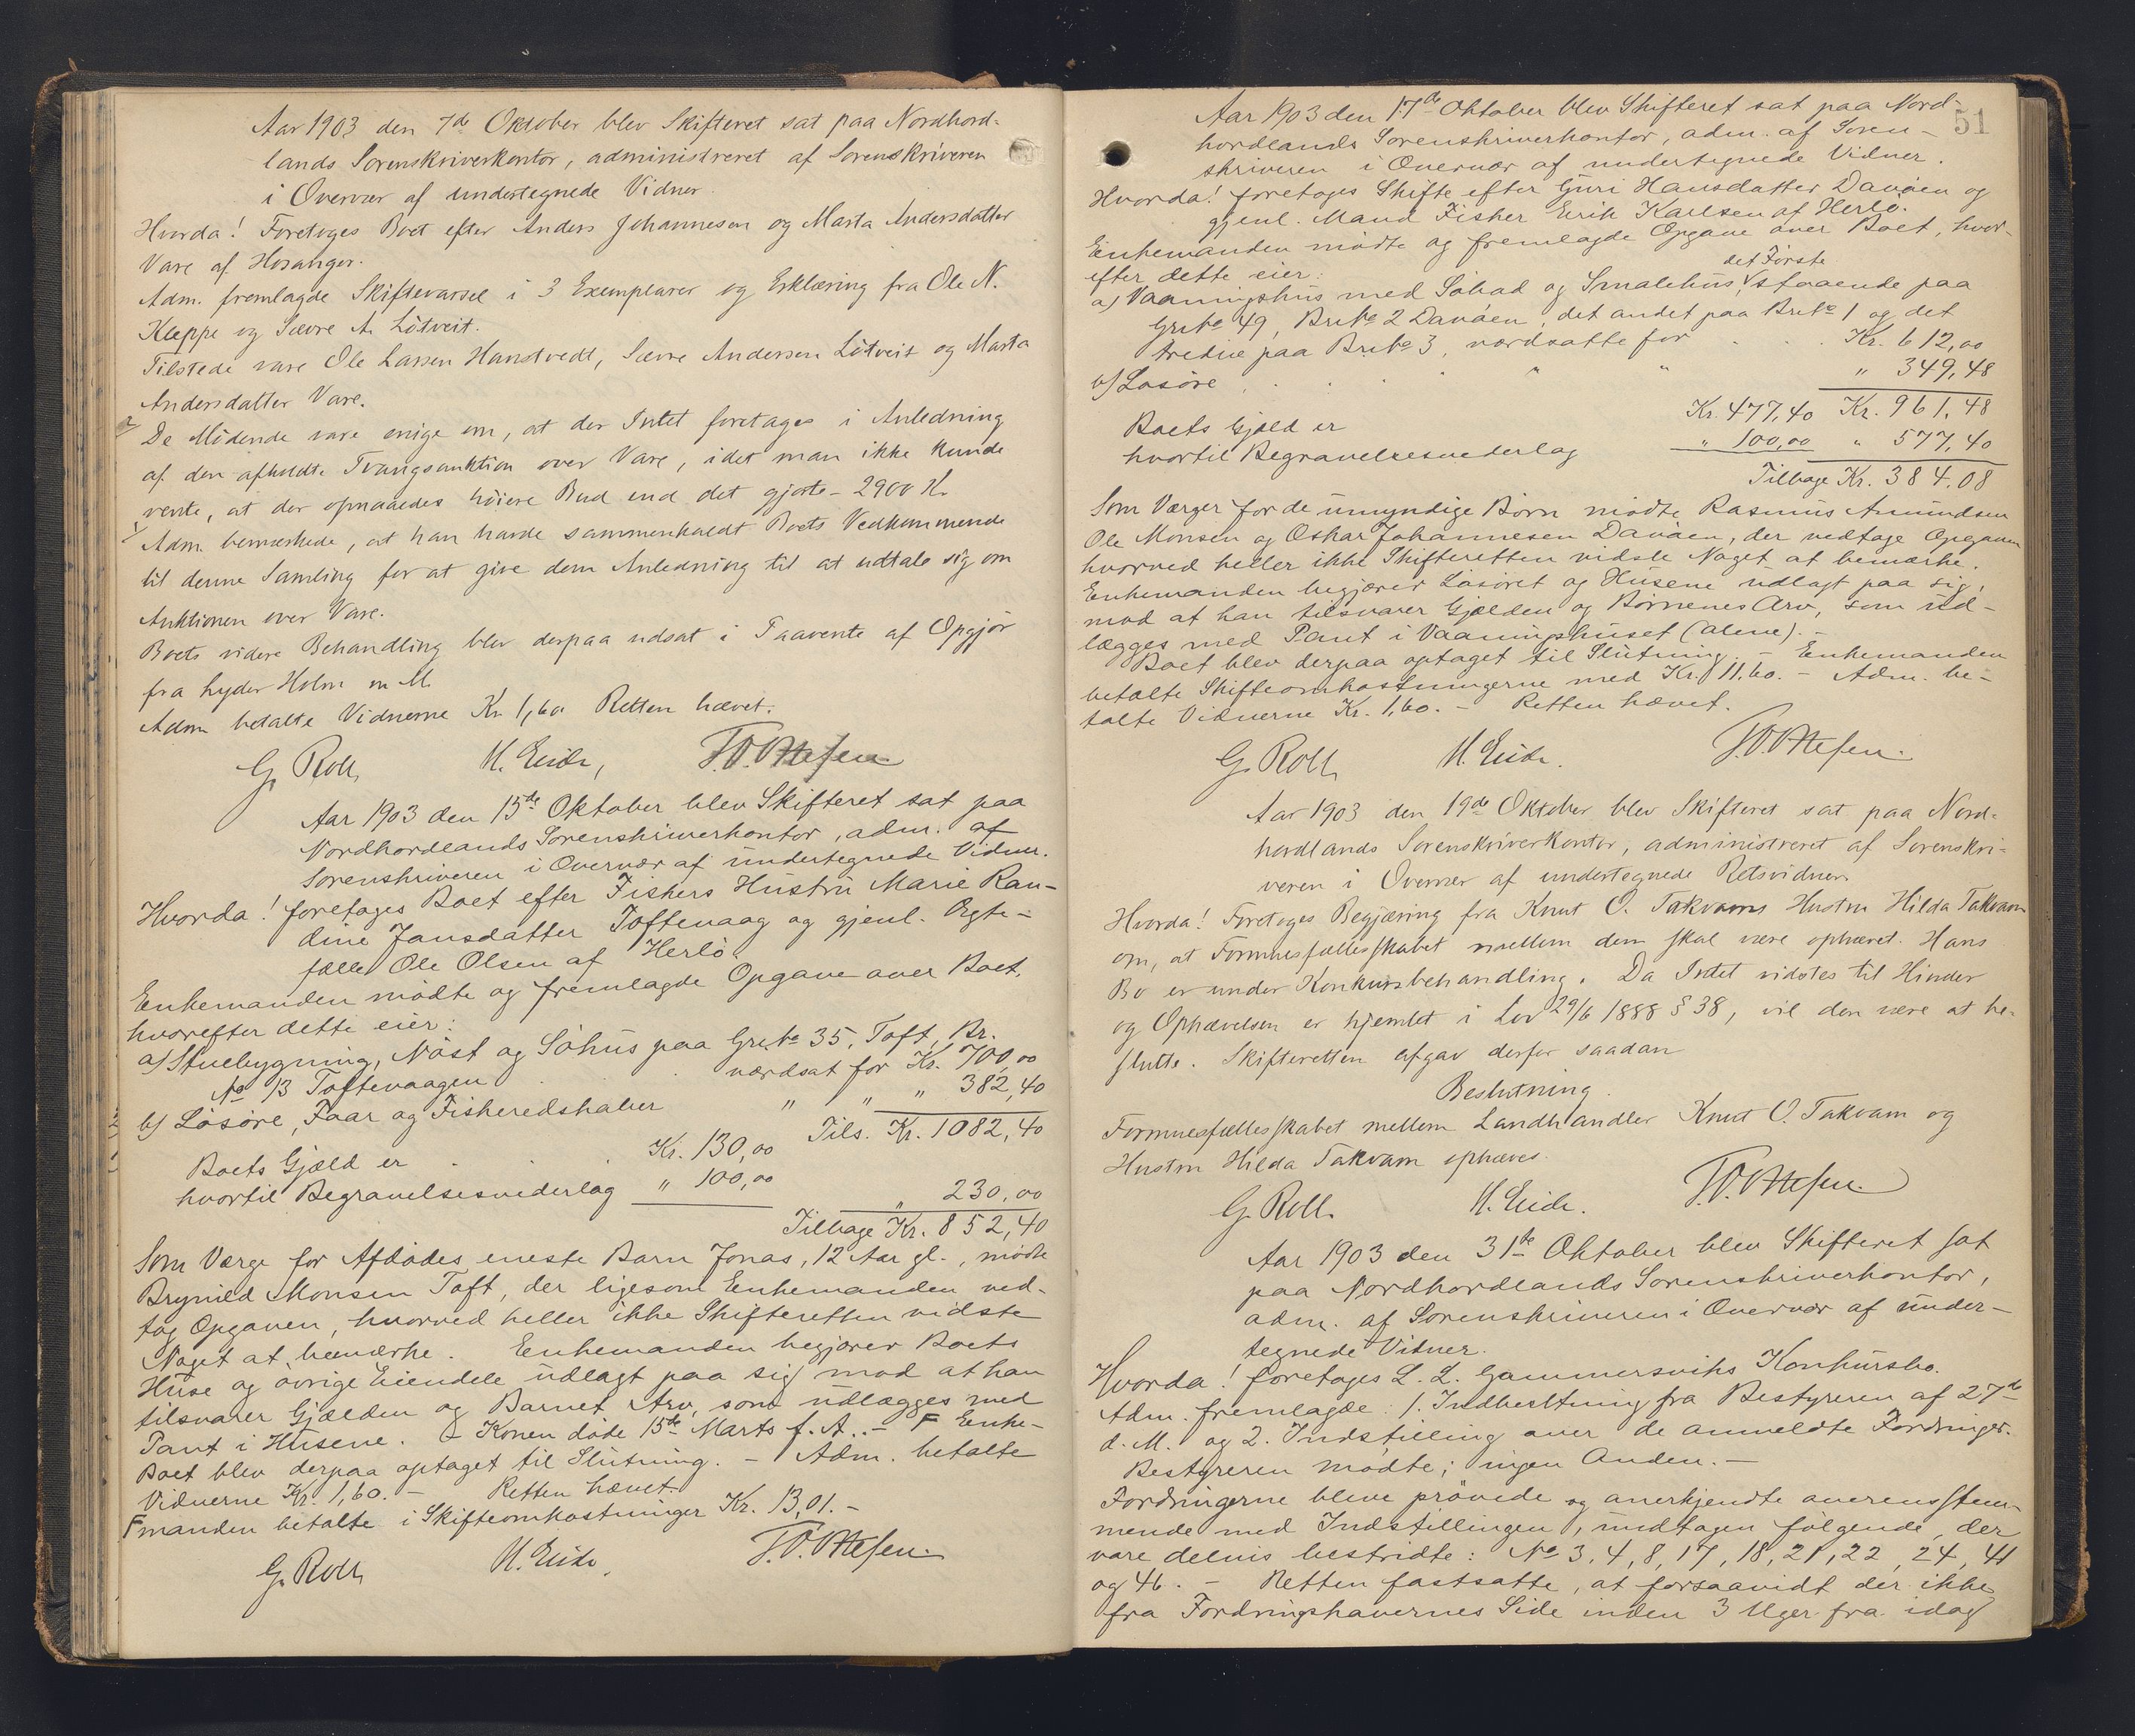 Aar 1903 den 7de Oktober blev Skifteret sat paa Nordhord=
lands Sorenskriverkontor, administreret af Sorenskriveren
i Overvær af undertegnede Vidner.
Hvorda! Foretoges Boet efter Anders Johannesen og Marta Andersdatter
Vare af Hosanger.
Adm. fremlagde Skiftevarsel i 3 Exemplarer og Erklæring fra Ole N.
Kleppe og Sævre A. Lötveit.
Tilstede vare Ole Larsen Hanstvedt, Sævre Andersen Lötveit og Marta
Andersdatter Vare.
De Mödende vare enige om, at der Intet foretages i Anledning
af den afholdte Tvangsauktion over Vare, idet man ikke kunde
vente, at der opnaaedes höiere Bud end det gjorte - 2900 Kr.
Adm. bemærkede, at han havde sammenkaldt Boets Vedkommende
til denne Samling for at give dem Anledning til at udtale sig om
Auktionen over Vare.
Boets videre Behandling blev derpaa udsat i Paavente af Opgjör
fra Lyder Holm m. M.
Adm betalte Vidnerne Kr 1,60 Retten hævet.
G. Roll, M. Eide, T. O. Ottesen
Aar 1903 den 15de Oktober blev Skifteret sat paa
Nordhordlands Sorenskriverkontor, adm. af
Sorenskriveren i Overvær af undertegnede Vidner.
Hvorda! foretoges Boet efter Fiskers Hustru Marie Ran-
dine Jansdatter Toftevaag og gjenl. Ægte-
fælle Ole Olsen af Herlö.
Enkemanden mödte og fremlagde Opgave over Boet,
hvorefter dette eier:
a) Stuebygning, Nöst og Söhus paa Gr.No 35, Toft, Br.
No 13 Toftevaagen værdsat for Kr. 700,00
b) Lösöre, Faar og Fiskeredskaber " " " 382,40
Tils. Kr. 1082,40
Boets Gjæld er Kr. 130,00
hvortil Begravelsesvederlag " 100,00 " 230,00
Tilbage Kr. 852,40
Som Værge for Afdödes eneste Barn Jonas, 12 Aar gl., mödte
Brynild Monsen Toft, der ligesom Enkemanden ved-
tog Opgaven, hvorved heller ikke Skifteretten vidste
Noget at bemærke. Enkemanden begjærer Boets
Huse og övrige Eiendele udlagt paa sig mod at han
tilsvarer Gjælden og Barnet Arv, som udlægges med
Pant i Husene. - Konen döde 15de Marts f. A. - F Enke-
Boet blev derpaa optaget til Slutning. - Adm. betalte
Vidnerne Kr. 1,60. - Retten hævet.
Fmanden betalte i Skifteomkostninger Kr. 13,01. -
G. Roll, M. Eide, T. O. Ottesen.
51
Aar 1903 den 17de Oktober blev Skifteret sat paa Nord-
hordlands Sorenskriverkontor, adm. af Soren-
skriveren i Overvær af undertegnede Vidner.
Hvorda! foretoges Skifte efter Guri Hansdatter Davöen og
gjenl. Mand Fisker Erik Karlsen af Herlö.
Enkemanden mödte og fremlagde Opgave over Boet, hvor-
efter dette eier:
det Förste
a) Vaaningshus med Söbod og Smalehus, V staaende paa
Gr.No 49, Br.No 2 Davöen, det andet paa Br.No 1 og det
tredie paa Br.No 3, værdsatte for Kr. 612,00
b) Lösöre " " " 349,48
Kr. 961,48
Boets Gjæld er Kr. 477,40
hvortil Begravelsesvederlag " 100,00 " 577,40
Tilbage Kr. 384,08
Som Værger for de umyndige Börn mödte Rasmus Amundsen
Ole Monsen og Oskar Johannesen Davöen, der vedtoge Opgaven
hvorved heller ikke Skifteretten vidste Noget at bemærke.
Enkemanden begjærer Lösöret og Husene udlagt paa sig,
mod at han tilsvarer Gjælden og Börnenes Arv, som ud-
lægges med Pant i Vaaningshuset (alene). -
Boet blev derpaa optaget til Slutning. - Enkemanden
betalte Skifteomkostningerne med Kr. 11,60. - Adm. be-
talte Vidnerne Kr. 1,60. - Retten hævet.
G. Roll, M. Eide. T. O. Ottesen.
Aar 1903 den 19de Oktober blev Skifteret sat paa Nord=
hordlands Sorenskriverkontor, administreret af Sorenskri=
veren i Overvær af undertegnede Retsvidner.
Hvorda! Foretoges Begjæring fra Knut O. Takvams Hustru Hilda Takvam
om, at Formuesfællesskabet mellem dem skal være ophævet. Hans
Bo er under Konkursbehandling. Da Intet vidstes til Hinder
og Ophævelsen er hjemlet i Lov 29/6 1888 § 38, vil den være at be-
slutte. Skifteretten afgav derfor saadan
Beslutning.
Formuesfællesskabet mellem Landhandler Knut O. Takvam og
Hustru Hilda Takvam ophæves.
G. Roll. M. Eide. T. O. Ottesen.
Aar 1903 den 31te Oktober blev Skifteret sat
paa Nordhordlands Sorenskriverkontor,
adm. af Sorenskriveren i Overvær af under-
tegnede Vidner.
Hvorda! foretoges L. L. Gammersviks Konkursbo.
Adm. fremlagde: 1. Indberetning fra Bestyreren af 27de
d. M. og 2. Indstilling over de anmeldte Fordringer.
Bestyreren mödte; ingen Anden. -
Fordringerne bleve prövede og anerkjendte overensstem-
mende med Indstillingen, undtagen fölgende, der
vare delvis bestridte: No 3, 4, 8, 17, 18, 21, 22, 24, 41
og 46. - Retten fastsatte, at forsaavidt der ikke
fra Fordringshavernes Side inden 3 Uger fra idag